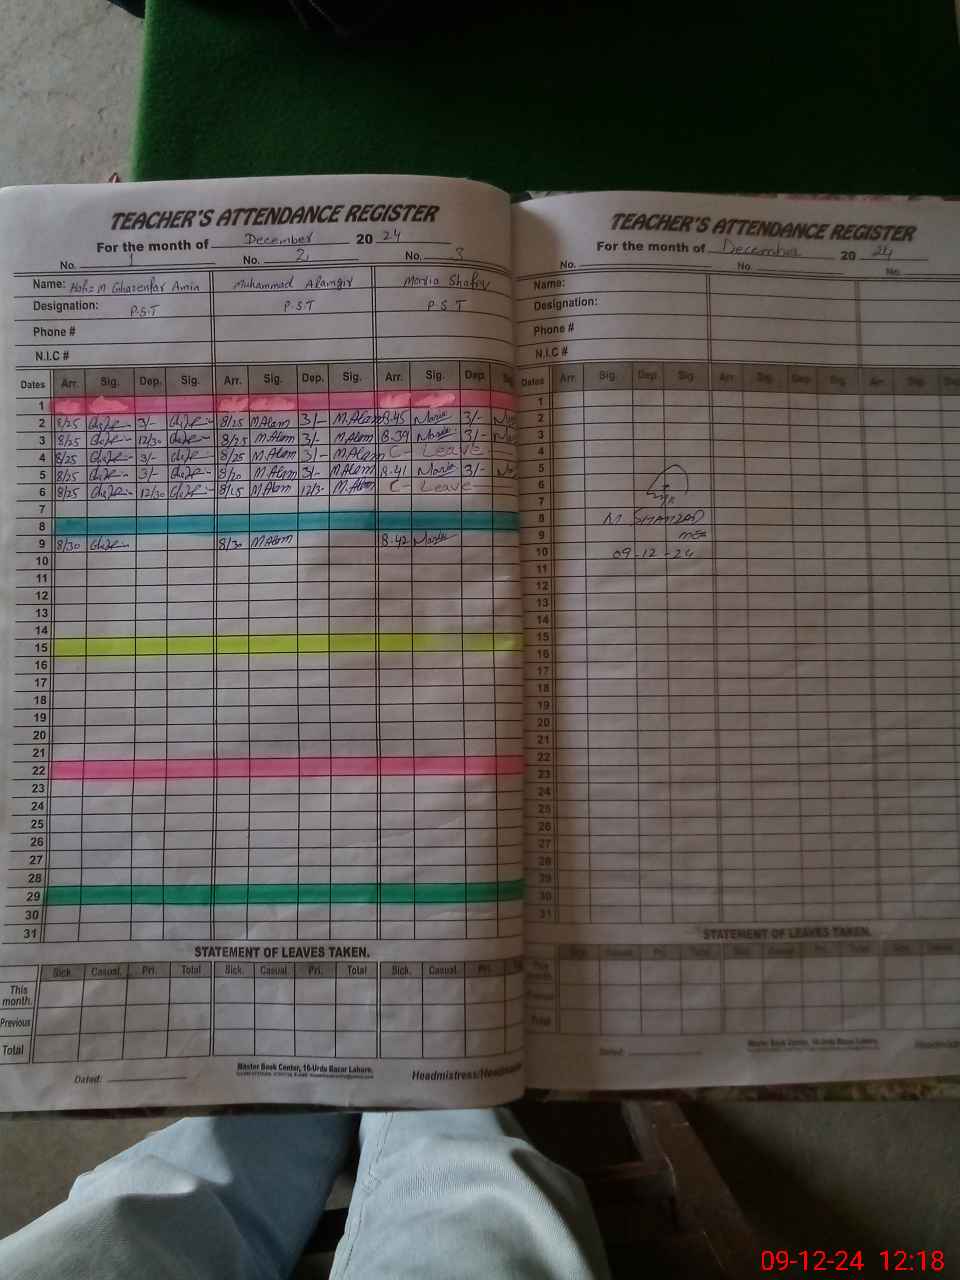 TEACHER'S ATTENDANCE REGISTER
For the month of December 20 24
No. 1 No. 2 No. 3
Name: M Ghazenfar Amin Muhammad Alamgir Maria Shafiq
Designation: P.S.T P.S.T P.S.T
Phone #
N.I.C #
Dates Arr. Sig. Dep. Sig. Arr. Sig. Dep. Sig. Arr. Sig. Dep. Sig
1
2 8/25 3/- 8/25 M.Alam 3/- M.Alam 8.45 3/-
3 8/25 12/30 8/25 M.Alam 3/- M.Alam 8.39 3/-
4 8/25 3/- 8/25 M.Alam 3/- M.Alam C- Leave
5 8/25 3/- 8/20 M.Alam 3/- M.Alam 8.41 3/-
6 8/25 12/30 8/15 M.Alam 12/3 M.Alam C- Leave
7
8
9 8/30 8/30 M.Alam 8.42
10
11
12
13
14
15
16
17
18
19
20
21
22
23
24
25
26
27
28
29
30
31
STATEMENT OF LEAVES TAKEN.
Sick. Casual. Pri. Total Sick. Casual. Pri. Total Sick. Casual. Pri.
This month.
Previous
Total
Dated:
Master Book Center, 16-Urdu Bazar Lahore.
Headmistress/Headmaster
TEACHER'S ATTENDANCE REGISTER
For the month of December 20 24
No. No. No.
Name:
Designation:
Phone #
N.I.C #
Dates Arr. Sig. Dep. Sig. Arr. Sig. Dep. Sig. Arr. Sig. Sig.
1
2
3
4
5
6
7
8 M. SHAHZAD
9
10 09-12-24
11
12
13
14
15
16
17
18
19
20
21
22
23
24
25
26
27
28
29
30
31
STATEMENT OF LEAVES TAKEN.
This month.
Total
Dated:
Master Book Center, 16-Urdu Bazar Lahore.
09-12-24 12:18